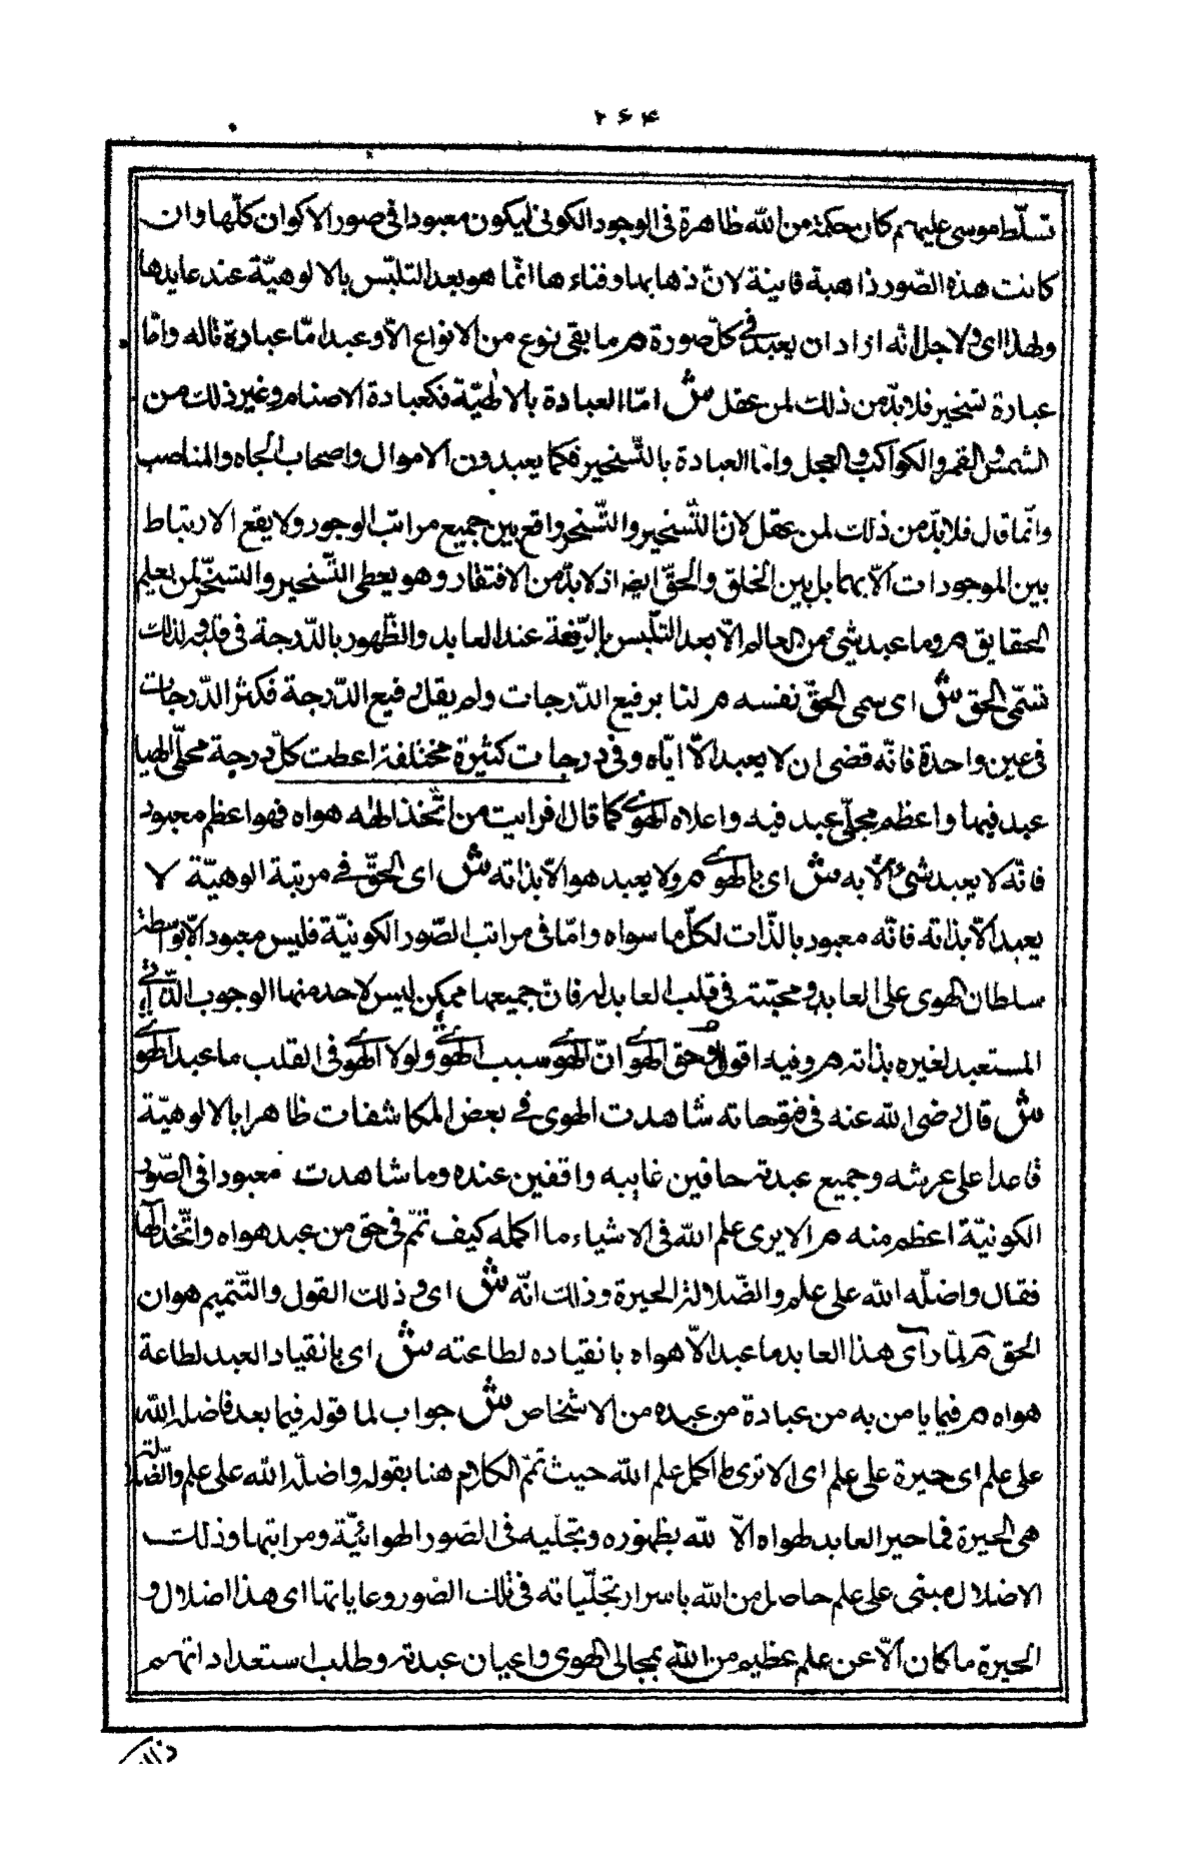 ۲۶۴
تسلّط موسى عليهم كان حكمة من الله ظاهرة فى الوجود الكونى ليكون معبودا فى صور الاكوان كلّها وان
كانت هذه الصّور ذاهبة فانية لانّ ذهابها وفناءها انّما هو بعد التلبّس بالالوهيّة عند عابدها
ولهذا اى ولاجل انّه اراد ان يعبد فى كلّ صورة م ما بقى نوع من الانواع الّا وعبد امّا عبادة تاله وامّا
عبادة تسخير فلا بدّ من ذلك لمن عقل ش امّا العبادة بالالهيّة فكعبادة الاصنام وغير ذلك من
الشمس والقمر والكواكب والعجل وامّا العبادة بالتّسخير فكما يعبدون الاموال واصحاب الجاه والمناصب
وانّما قال فلا بدّ من ذلك لمن عقل لانّ التّسخير والتّسخّر واقع بين جميع مراتب الوجود ولا يقع الارتباط
بين الموجودات الّا بهما بل بين الخلق والحقّ ايضا اذ لا بدّ من الافتقار وهو يعطى التّسخير والتسخّر لمن يعلم
الحقايق م وما عبد شئ من العالم الّا بعد التلبّس بالرّفعة عند العابد والظّهور بالدّرجة فى قلبه ولذلك
تسمّى الحق ش اى سمى الحقّ نفسه م لنا برفيع الدّرجات ولم يقل رفيع الدّرجة فكثر الدّرجات
فى عين واحدة فانّه قضى ان لا يعبد الّا ايّاه وفى درجات كثيرة مختلفة اعطت كلّ درجة مجلّى الهيا
عبد فيها واعظم مجلّى عبد فيه واعلاه الهوى كما قال افرايت من اتّخذ الهه هواه فهو اعظم معبود
فانّه لا يعبد شئ الّا به ش اى بالهوى م ولا يعبد هو الّا بذاته ش اى الحقّ فى مرتبة الوهيّة لا
يعبد الّا بذاته فانّه معبود بالذّات لكلّ ما سواه وامّا فى مراتب الصّور الكونيّة فليس معبودا الّا بواسطة
سلطان الهوى على العابد ومحبّته فى قلب العابد له فانّ جميعها ممكن ليس لاحد منها الوجوب الذّاتى
المستعبد لغيره بذاته م وفيه اقول وحق الهوى انّ الهوى سبب الهوى ولولا الهوى فى القلب ما عبد الهوى
ش قال رضى الله عنه فى فتوحاته شاهدت الهوى فى بعض المكاشفات ظاهرا بالالوهيّة
قاعدا على عرشه وجميع عبدته حافين غايبه واقفين عنده وما شاهدت معبودا فى الصّور
الكونيّة اعظم منه م الا يرى علم الله فى الاشياء ما اكمله كيف تمّم فى حق من عبد هواه واتّخذه الها
فقال واضلّه الله على علم والضّلالة الحيرة وذلك انّه ش اى وذلك القول والتّتميم هو ان
الحق م لمّا رأى هذا العابد ما عبد الّا هواه بانقياده لطاعته ش اى بانقياد العبد لطاعة
هواه م فيما يامن به من عبادة من عبده من الاشخاص ش جواب لما قوله فيما بعد فاضله الله
على علم اى حيرة على علم اى الا ترى ما اكمل علم الله حيث تمّم الكلام هنا بقوله واضلّه الله على علم والضّلالة
هى الحيرة فما حير العابد لهواه الّا لله بظهوره وتجلّيه فى الصّور الهوائيّة ومراتبها وذلك
الاضلال مبنى على علم حاصل من الله باسرار تجلّياته فى تلك الصّور وغاياتها اى هذا اضلال و
الحيرة ما كان الّا عن علم عظيم من الله بمجالى الهوى واعيان عبدته وطلب استعداداتهم